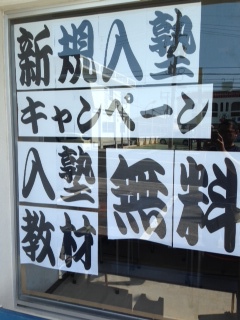 新規入塾
キャンペーン
入塾 無料
教材